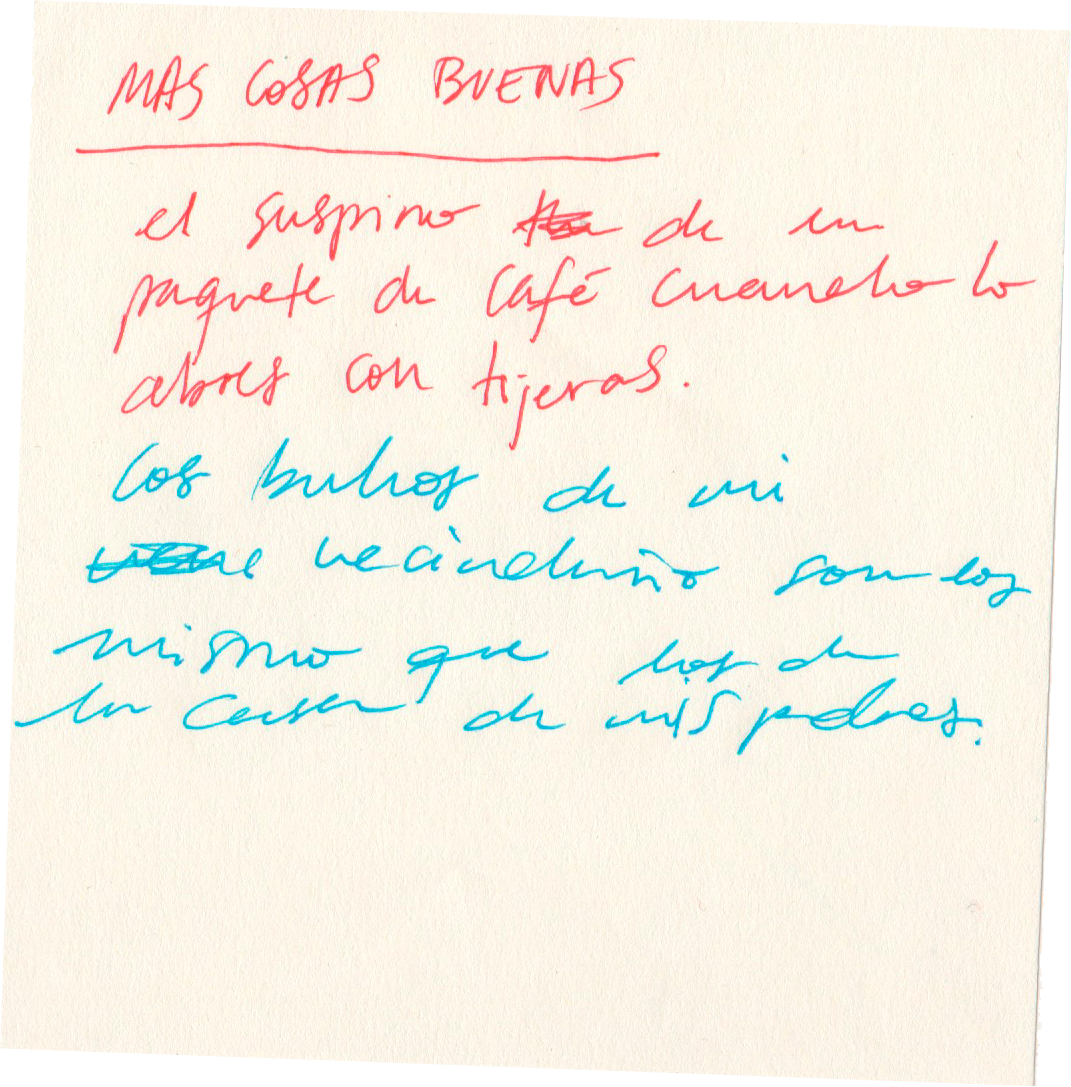 MAS COSAS BUENAS
el suspiro de un
paquete de café cuando lo
abres con tijeras.
Los buhos de mi
vecindario son los
mismo que los de
la casa de mis padres.